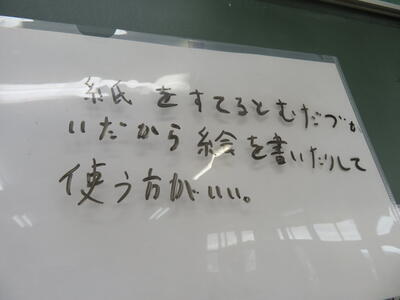 紙をすてるとむだづか
いだから絵を書いたりして
使う方がいい。